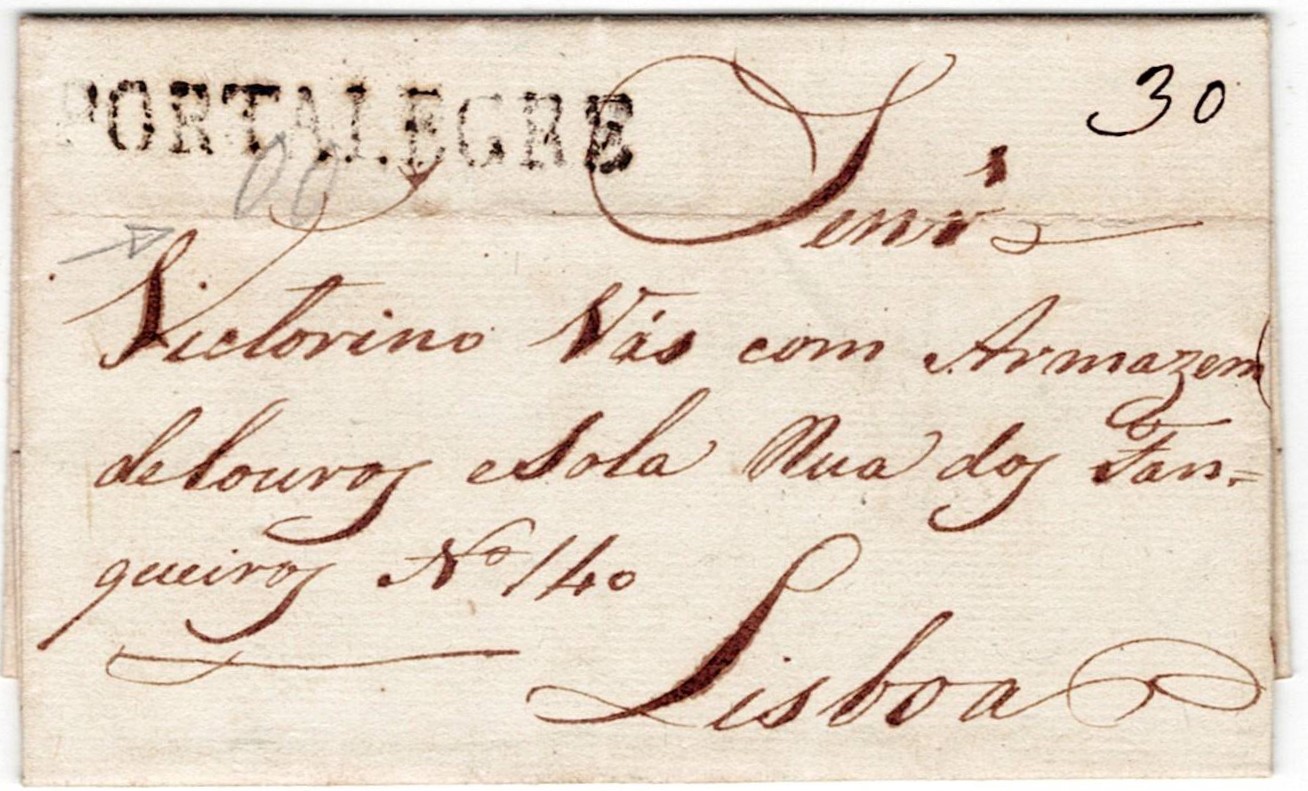 PORTALEGRE
30
Senr
Victorino Vás com Armazem
de Couros e Sola Rua dos Fan=
queiros Nº 140
Lisboa